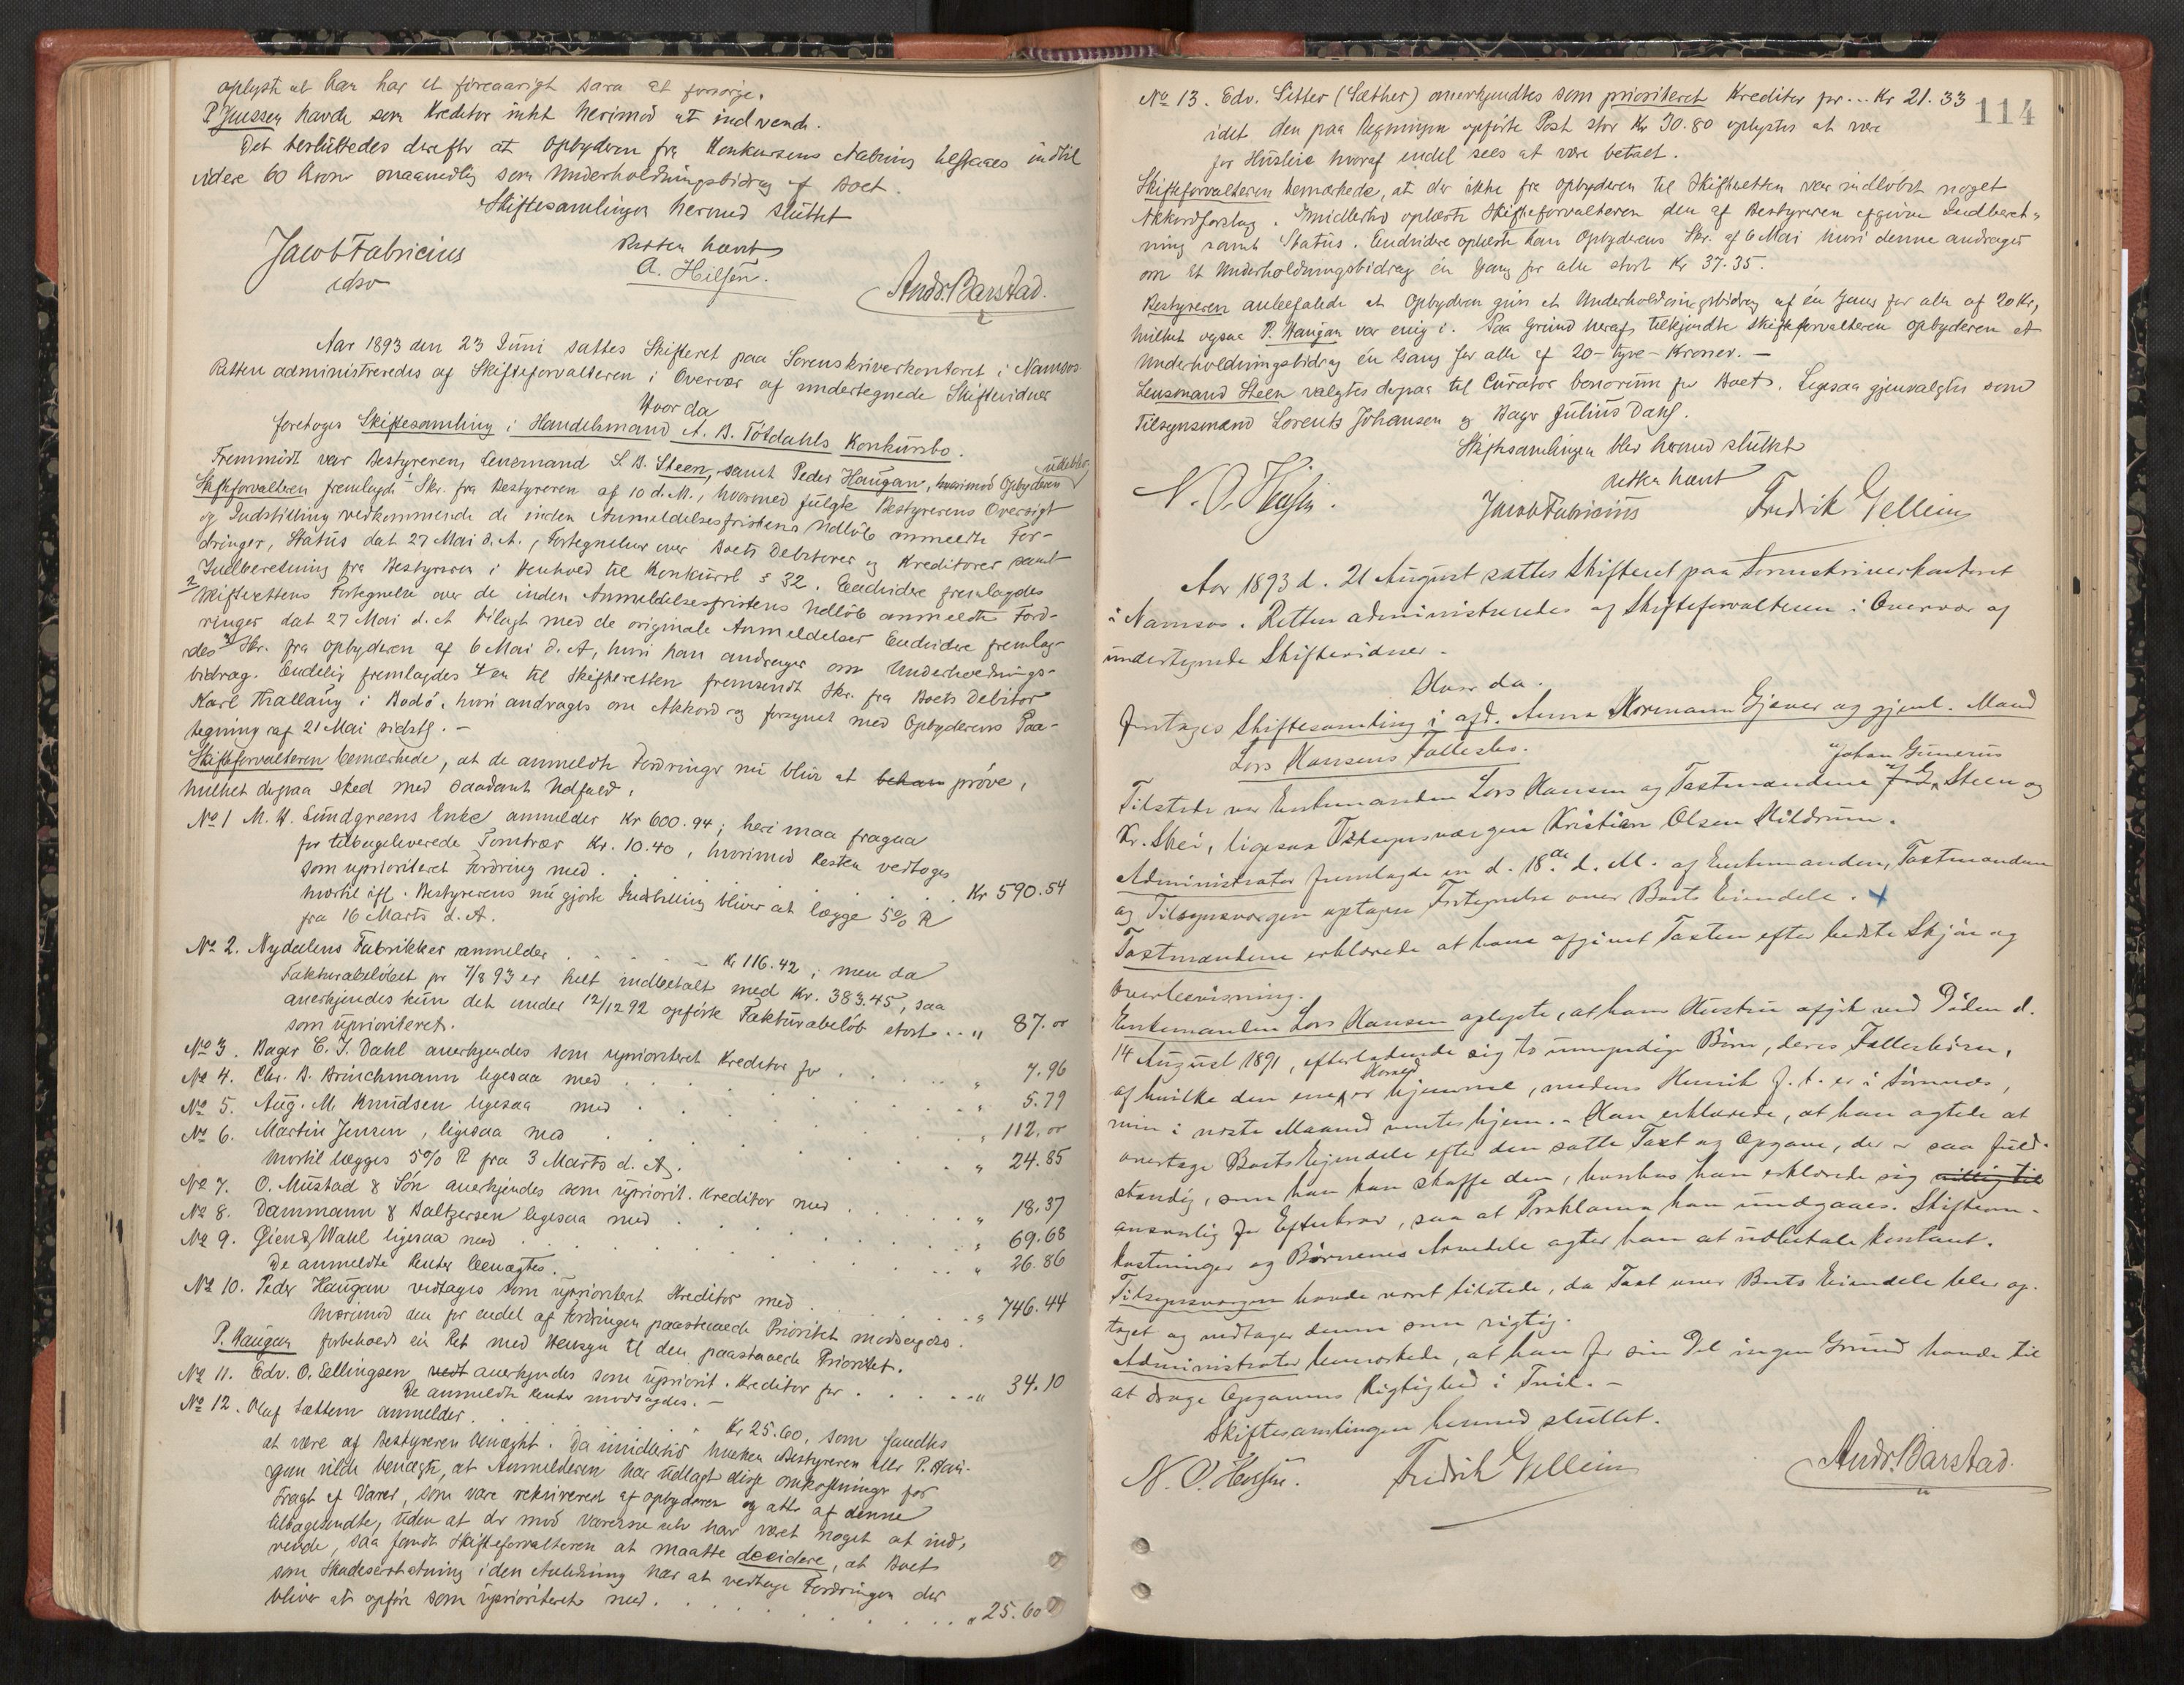 oplyst at han har et foreaarigt Barn at forsørge.
P. Jenssen havde som Kreditor intet herimod at indvende.
Det besluttedes derefter at Opbyderen fra Konkursens Aabning tilstaaes indtil
videre 60 Kroner maanedlig som Underholdningsbidrag af Boet.
Skiftesamlingen hermed sluttet
Retten hævet
Jacob Fabricius
A. Hilsen.
Andr. Barstad.
Aar 1893 den 23 Juni sattes Skifteret paa Sorenskriverkontoret i Namsos
Retten administreredes af Skifteforvalteren i Overvær af undertegnede Skiftevidner
Hvor da
foretoges Skiftesamling i Handelsmand A. B. Tötdahls Konkursbo.
Fremmødt var Bestyreren, Lensmand S. B. Steen, samt Peder Haugan, hvorimod Opbyderen udeblev.
Skifteforvalteren fremlagde 1 Skr. fra Bestyreren af 10 d. M., hvormed fulgte Bestyrerens Oversigt
og Indstilling vedkommende de inden Anmeldelsesfristens Udløb anmeldte For-
dringer, Status dat 27 Mai d. A., Fortegnelser over Boets Debitorer og Kreditorer samt
Indberetning fra Bestyreren i Henhold til Konkursl. § 32. Endvidere fremlagdes
2 Skifterettens Fortegnelse over de inden Anmeldelsesfristens Udløb anmeldte Ford-
ringer dat 27 Mai d. A bilagt med de originale Anmeldelser Endvidere fremlag-
des 3 Skr. fra Opbyderen af 6 Mai d. A, hvori han andrager om Underholdnings-
bidrag. Endelig fremlagdes 4 en til Skifteretten fremsendt Skr. fra Boets Debitor
Karl Thallaug i Bodö, hvori andrages om Akkord og forsynet med Opbyderens Paa-
tegning af 21 Mai sidstl. —
Skifteforvalteren bemærkede, at de anmeldte Fordringer nu bliver at behan prøve,
hvilket derpaa sked med saadant Udfald:
No 1 M. H. Lundgreens Enke anmelder Kr 600.94; heri maa fragaa
for tilbageleverede Tomtvær Kr. 10.40, hvorimod Resten vedtoges
som uprioriteret Fordring med . . . Kr 590.54
hvortil ifl. Bestyrerens nu gjorte Indstilling bliver at lægge 5% R
fra 16 Marts d. A.
No 2. Nydalens Fabrikker anmelder . . . Kr 116.42; men da
Fakturabeløbet pr 7/8 93 er helt indbetalt med Kr. 383.45, saa
anerkjendes kun det under 12/12 92 opførte Fakturabeløb stort . . " 87.00
som uprioriteret.
No 3. Bager C. J. Dahl anerkjendes som uprioriteret Kreditor for . . . " 7.96
No 4. Chr. B. Brinchmann ligesaa med . . . " 5.79
No 5. Aug. M. Knudsen ligesaa med . . . " 112.00
No 6. Martin Jensen, ligesaa med . . . " 24.85
hvortil lægges 5% R fra 3 Marts d. A.
No 7. O. Mustad & Søn anerkjendes som upriorit. Kreditor med . . . " 18.37
No 8. Dammann & Baltzersen ligesaa med . . . " 69.68
No 9. Øien & Wahl ligesaa med . . . " 26.86
De anmeldte Renter benægtes.
No 10. Peder Haugan vedtages som uprioriteret Kreditor med . . . " 746.44
hvorimod den for endel af Fordringen paastaaede Prioritet modsagdes.
P. Haugan forbeholdt sin Ret med Hensyn til den paastaaede Prioritet.
No 11. Edv. O. Ellingsen vedt anerkjendes som upriorit. Kreditor for . . . " 34.10
De anmeldte Renter modsagdes. —
No 12. Oluf Sættem anmelder . . . Kr 25.60, som fandtes
at være af Bestyreren benægtet. Da imidlertid hverken Bestyreren eller P. Hau-
gan vilde benægte, at Anmelderen har udlagt disse Omkostninger for
Fragt af Varer, som vare rekvireret af Opbyderen og atter af denne
tilbagesendte, uden at der mod Varerne selv har været noget at ind-
vende, saa fandt Skifteforvalteren at maatte decidere, at Boet
som Skadeserstatning i den Anledning har at vedtage Fordringen der
bliver at opføre som uprioriteret med . . . " 25.60
114
No 13. Edv. Sitter (Sæther) anerkjendtes som prioriteret Kreditor for . . . Kr 21.33
idet den paa Regningen opførte Post stor Kr 30.80 oplystes at være
for Husleie hvoraf endel sees at være betalt.
Skifteforvalteren bemærkede, at der ikke fra Opbyderen til Skifteretten var indløbet noget
Akkordforslag. Imidlertid oplæste Skifteforvalteren den af Bestyreren afgivne Indberet-
ning samt Status. Endvidere oplæste han Opbyderens Skr. af 6 Mai hvori denne andrager
om et Underholdningsbidrag én Gang for alle stort Kr 37.35.
Bestyreren anbefalede at Opbyderen gives et Underholdningsbidrag af én Gang for alle af 20 Kr,
hvilket ogsaa P. Haugan var enig i. Paa Grund heraf tilkjendte Skifteforvalteren Opbyderen et
Underholdningsbidrag én Gang for alle af 20 - tyve - Kroner. —
Lensmand Steen valgtes derpaa til Curator bonorum for Boet. Ligesaa gjenvalgtes som
Tilsynsmænd Lorents Johansen og Bager Julius Dahl.
Skiftesamlingen blev hermed sluttet
Retten hævet
Jacob Fabricius
Fredrik Gellein
Aar 1893 d. 21 August sattes Skifteret paa Sorenskriverkontoret
i Namsos. Retten administreredes af Skifteforvalteren i Overvær af
undertegnede Skiftevidner.
Hvor da.
foretoges Skiftesamling i afd. Anna Normann Gjæver og gjenl. Mand
Lars Hansens Fællesbo.
Johan Gunerius
Tilstede var Enkemanden Lars Hansen og Taxtmændene J. G. Steen og
Kr. Skei, ligesaa Tilsynsværgen Kristian Olsen Mildrum.
Administrator fremlagde en d. 18de d. M. af Enkemanden, Taxtmændene
og Tilsynsværgen optagen Fortegnelse over Boets Eiendele.
Taxtmændene erklærede at have afgivet Taxten efter bedste Skjøn og
Overbevisning.
Enkemanden Lars Hansen oplyste, at hans Hustru afgik ved Døden d.
14 August 1891, efterladende sig to umyndige Børn, deres Fællesbørn,
af hvilke den ene er hjemme, medens Henrik f. t. er i Sømnæs,
men i næste Maaned ventes hjem. - Han erklærede, at han agtede at
overtage Boets Eiendele efter den satte Taxt og Opgave, der er saa fuld-
stændig, som han kan skaffe den, hvorhos han erklærede sig villig til
ansvarlig for Efterkrav, saa at Proklama kan undgaaes. Skifteom-
kostninger og Børnenes Arvedele agter han at udbetale kontant.
Tilsynsværgen havde været tilstede, da Taxt over Boets Eiendele blev op-
taget og vedtager denne som rigtig.
Administrator bemærkede, at han for sin Del ingen Grund havde til
at drage Opgavens Rigtighed i Tvil. —
Skiftesamlingen hermed sluttet.
Fredrik Gellein
Andr. Barstad.